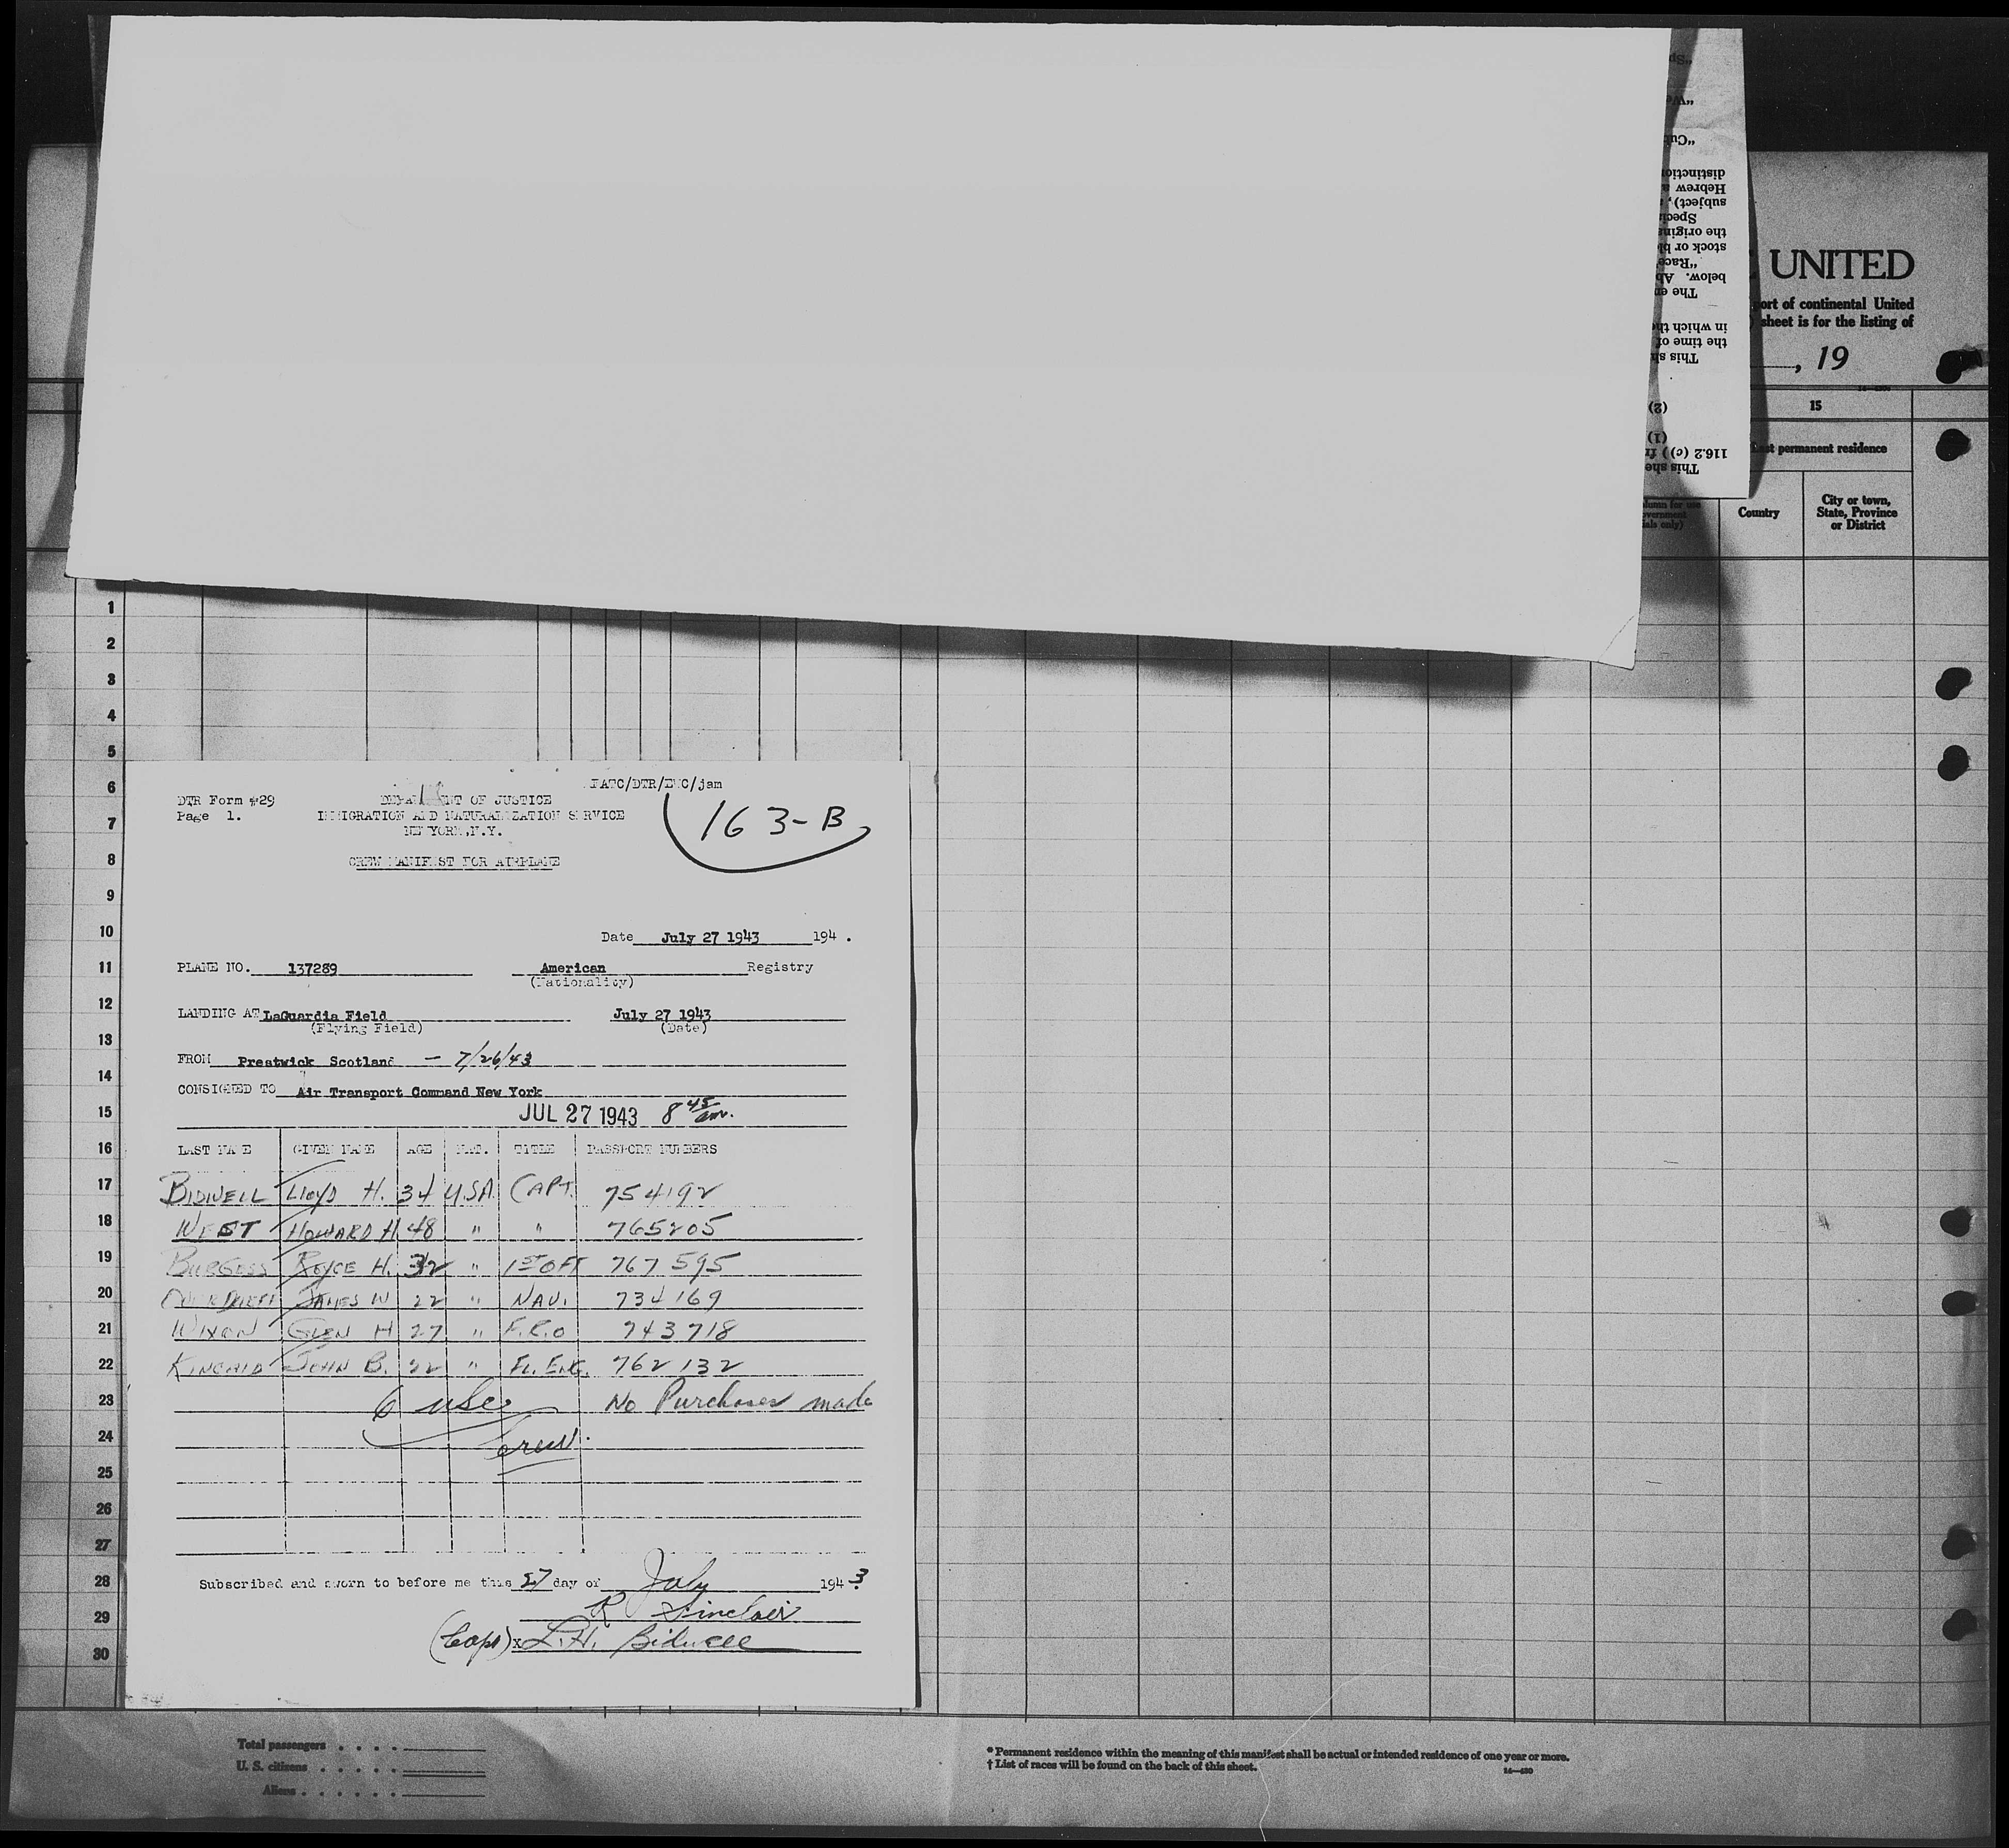 UNITED
port of continental United
sheet is for the listing of
, 19
15
permanent residence
Country
City or town,
State, Province
or District
"Cu
distinctio
Hebrew
subject),
Speci
the origin
stock or bl
"Race
below. Ab
The en
in which the
the time of
This sh
(2)
(1)
116.2 (c)) f
This she
1
2
3
4
5
6
7
8
9
10
11
12
13
14
15
16
17
18
19
20
21
22
23
24
25
26
27
28
29
30
DTR Form #29
Page 1.
DEPARTMENT OF JUSTICE
IMMIGRATION AND NATURALIZATION SERVICE
NEW YORK, N.Y.
CREW MANIFEST FOR AIRPLANE
163-B
Date July 27 1943 194 .
PLANE NO. 137289 American Registry
(Nationality)
LANDING AT LaGuardia Field July 27 1943
(Flying Field) (Date)
FROM Prestwick Scotland - 7/26/43
CONSIGNED TO Air Transport Command New York
JUL 27 1943 8 45 am.
LAST NAME GIVEN NAME AGE NAT. TITLE PASSPORT NUMBERS
BIDWELL LLOYD H. 34 U.S.A. CAPT. 754192
WEST HOWARD H. 48 " " 765205
BURGESS ROYCE H. 32 " 1ST OFF 767595
JAMES W 22 " NAV. 734169
WIXON GLEN H 27 " F.R.O 743718
KINCAID JOHN B. 22 " FL. ENG. 762132
6 USC No Purchases made
Crew.
Subscribed and sworn to before me this 27 day of July 194 3
R Sinclair
(Capt) x L. H. Bidwell
Total passengers . . . .
U. S. citizens . . . . .
Aliens . . . . . .
* Permanent residence within the meaning of this manifest shall be actual or intended residence of one year or more.
† List of races will be found on the back of this sheet.